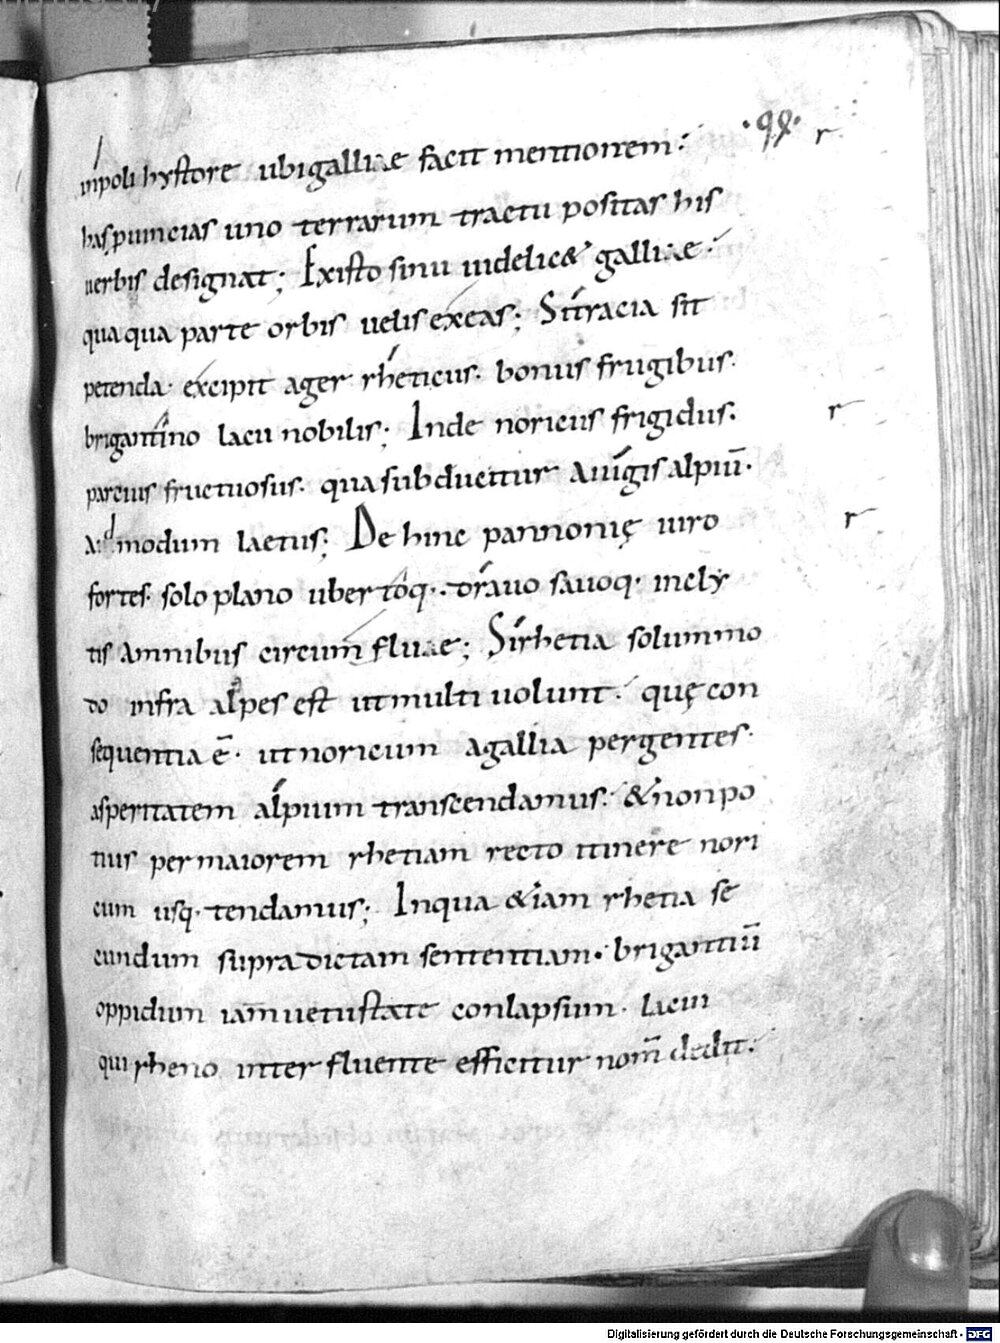 ·99· r
in poli hystore ubi galliae facit mentionem:
has puincias uno terrarum tractu positas his
uerbis designat; Ex isto sinu uidelic& galliae·
qua qua parte orbis uelis exeas; Si tracia sit
petenda· excipit ager rheticus· bonus frugibus·
brigantino lacu nobilis; Inde noricus frigidus· r
parcius fructuosus· qua subducitur a iugis alpiū·
admodum laetus; De hinc pannonię uiro r
fortes· solo plano ubertoq·· drauo sauoq· incly
tis amnibus circumfluae; Si rhetia solummo
do infra alpes est ut multi uolunt· quę con
sequentia ē· ut noricum a gallia pergentes·
asperitatem alpium transcendamus· & non po
tius per maiorem rhetiam recto itinere nori
cum usq· tendamus; In qua &iam rhetia se
cundum supra dictam sententiam· brigantiū
oppidum iam uetustate conlapsum· lacui
qui rheno interfluente efficitur nom̄ dedit:
Digitalisierung gefördert durch die Deutsche Forschungsgemeinschaft - DFG